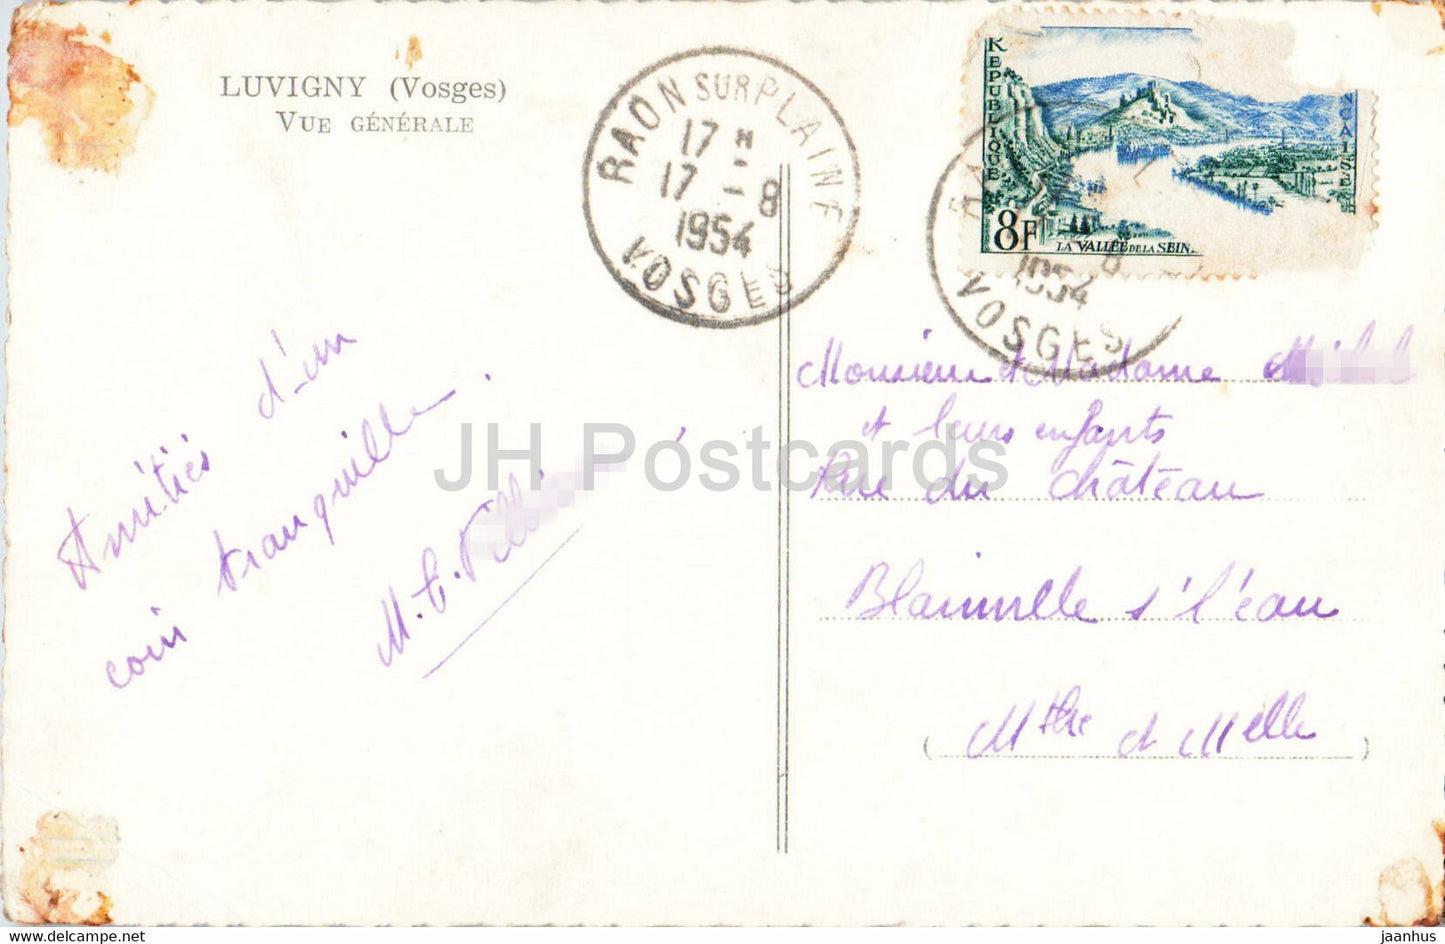 LUVIGNY (Vosges)
VUE GÉNÉRALE
RAON SUR PLAINE
17 H
17 - 8
1954
VOSGES
REPUBLIQUE
8F
LA VALLÉE DE LA SEIN
1954
VOSGES
Amitiés d'un
coin tranquille.
M. C.
Monsieur et Madame
et leurs enfants
Rue du château
Blainville s/ l'eau
(Mthe et Melle)
JH Postcards
www.delcampe.net
jaanhus